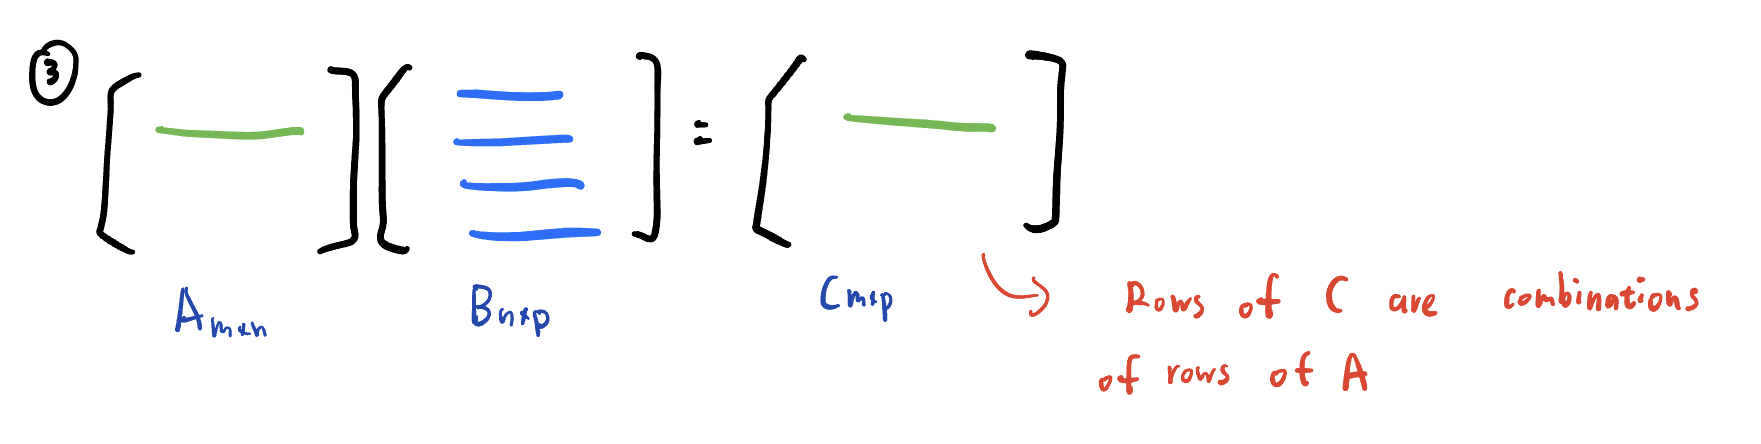 ③
[ ] [ ] = [ ]
A m×n B n×p C m×p
Rows of C are combinations
of rows of A